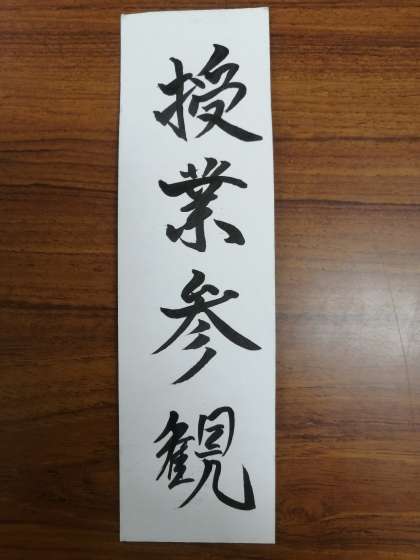 授業参観